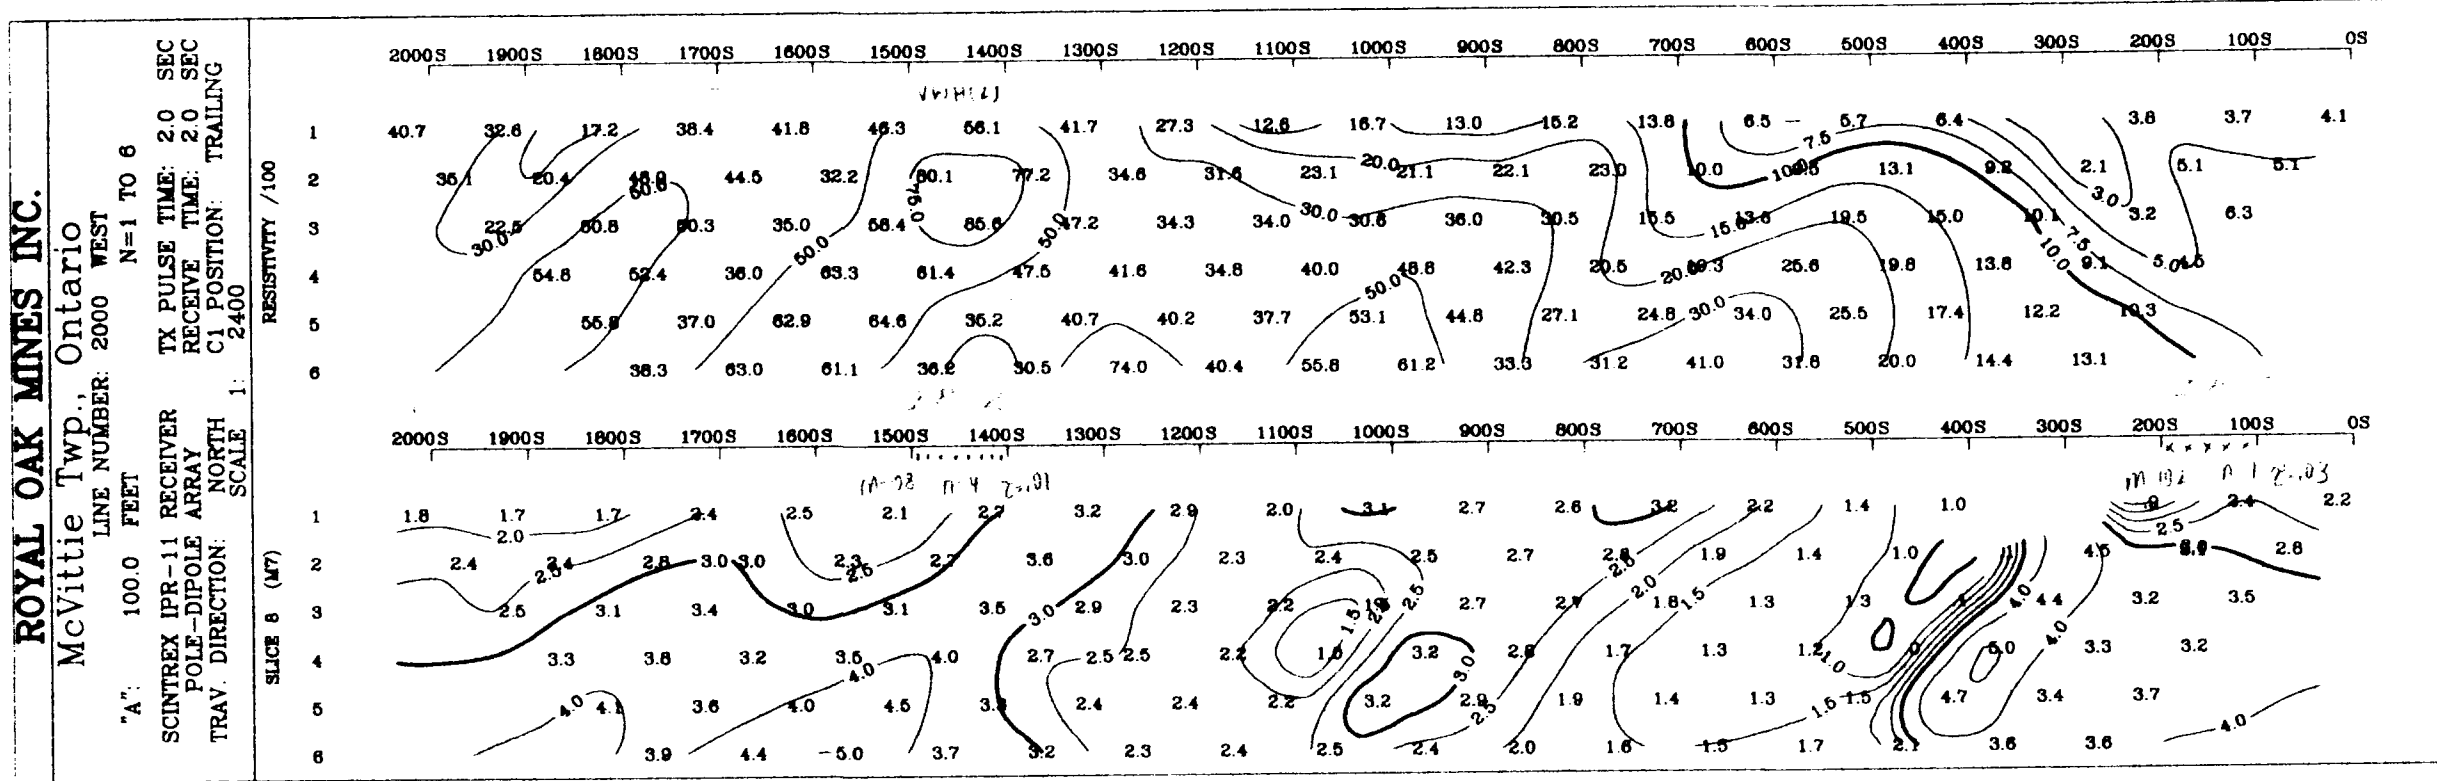 ROYAL OAK MINES INC.
McVittie Twp., Ontario
LINE NUMBER: 2000 WEST
"A": 100.0 FEET N=1 TO 6
SCINTREX IPR-11 RECEIVER TX PULSE TIME: 2.0 SEC
POLE-DIPOLE ARRAY RECEIVE TIME: 2.0 SEC
TRAV. DIRECTION: NORTH C1 POSITION: TRAILING
SCALE 1: 2400
RESISTIVITY /100
2000S 1900S 1800S 1700S 1600S 1500S 1400S 1300S 1200S 1100S 1000S 900S 800S 700S 600S 500S 400S 300S 200S 100S 0S
1 40.7 32.6 17.2 38.4 41.8 46.3 56.1 41.7 27.3 12.6 16.7 13.0 15.2 13.6 6.5 5.7 6.4 3.8 3.7 4.1
7.5
20.0
2 35.1 20.4 44.5 32.2 80.1 77.2 34.6 31.6 23.1 21.1 22.1 23.0 10.0 13.1 9.2 2.1 5.1 5.1
50.0 75.0 3.0
3 22.5 50.8 50.3 35.0 58.4 85.6 47.2 34.3 34.0 30.0 30.6 36.0 30.5 15.5 13.6 19.5 15.0 10.1 3.2 6.3
30.0 50.0 50.0 15.0 7.5
4 54.8 52.4 36.0 63.3 61.4 47.5 41.6 34.8 40.0 48.8 42.3 20.5 20.0 25.6 19.8 13.8 10.0 9.1 5.0
50.0
5 55.8 37.0 62.9 64.6 35.2 40.7 40.2 37.7 53.1 44.8 27.1 24.8 30.0 34.0 25.5 17.4 12.2 10.3
6 38.3 63.0 61.1 36.2 30.5 74.0 40.4 55.8 61.2 33.3 31.2 41.0 31.8 20.0 14.4 13.1
SLICE 8 (M7)
2000S 1900S 1800S 1700S 1600S 1500S 1400S 1300S 1200S 1100S 1000S 900S 800S 700S 600S 500S 400S 300S 200S 100S 0S
1 1.8 1.7 1.7 2.4 2.5 2.1 2.7 3.2 2.9 2.0 3.1 2.7 2.6 3.2 2.2 1.4 1.0 2.4 2.2
2.0 2.5
2 2.4 2.4 2.8 3.0 3.0 2.3 2.7 3.6 3.0 2.3 2.4 2.5 2.7 1.9 1.4 1.0 4.5 2.8
2.5 2.5 2.5
3 2.5 3.1 3.4 3.0 3.1 3.5 3.0 2.9 2.3 2.2 2.5 2.7 2.7 2.0 1.8 1.5 1.3 1.3 4.0 4.4 3.2 3.5
1.5 4.0 4.0
4 3.3 3.8 3.2 3.5 4.0 2.7 2.5 2.5 2.2 1.6 3.2 3.0 2.8 1.7 1.3 1.2 1.0 5.0 3.3 3.2
4.0
5 4.0 4.1 3.6 4.0 4.5 2.4 2.4 2.2 3.2 2.9 1.9 1.4 1.3 1.5 1.5 4.7 3.4 3.7
2.5 4.0
6 3.9 4.4 5.0 3.7 3.2 2.3 2.4 2.5 2.4 2.0 1.6 1.5 1.7 2.1 3.6 3.6